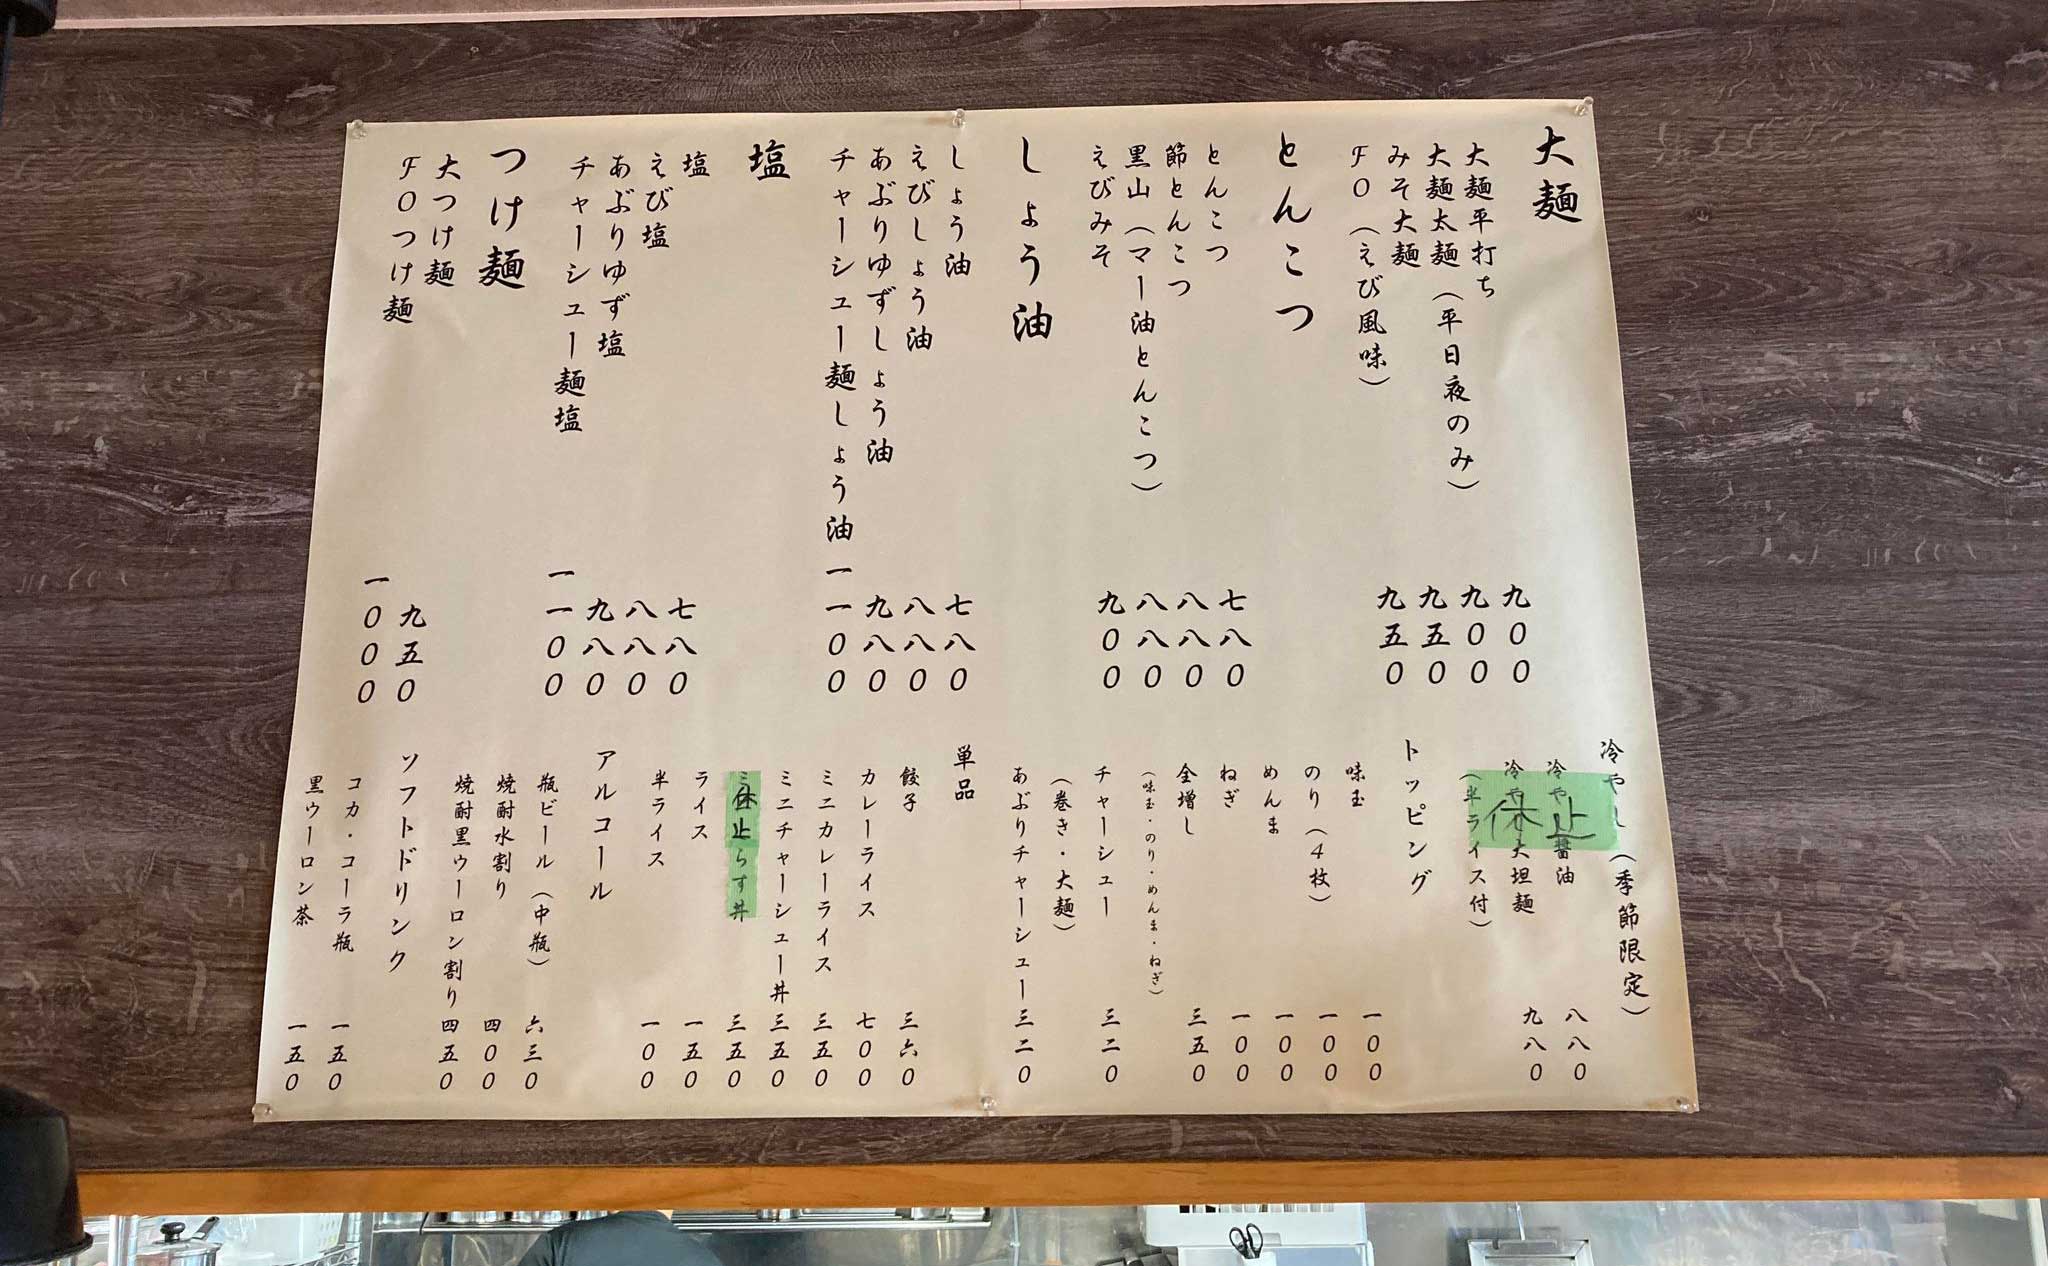 大麺
大麺平打ち 九〇〇
大麺太麺（平日夜のみ） 九〇〇
みそ大麺 九五〇
FO（えび風味） 九五〇
とんこつ
とんこつ 七八〇
節とんこつ 八八〇
黒山（マー油とんこつ） 八八〇
えびみそ 九〇〇
しょう油
しょう油 七八〇
えびしょう油 八八〇
あぶりゆずしょう油 九八〇
チャーシュー麺しょう油 一一〇〇
塩
塩 七八〇
えび塩 八八〇
あぶりゆず塩 九八〇
チャーシュー麺塩 一一〇〇
つけ麺
大つけ麺 九五〇
FOつけ麺 一〇〇〇
冷やし（季節限定）
冷やし醤油 八八〇
冷やし大坦麺 九八〇
（半ライス付）
休止
トッピング
味玉 一〇〇
のり（4枚） 一〇〇
めんま 一〇〇
ねぎ 一〇〇
全増し 三五〇
（味玉・のり・めんま・ねぎ）
チャーシュー 三二〇
（巻き・大麺）
あぶりチャーシュー 三二〇
単品
餃子 三六〇
カレーライス 七〇〇
ミニカレーライス 三五〇
ミニチャーシュー丼 三五〇
らす丼 三五〇
休止
ライス 一五〇
半ライス 一〇〇
アルコール
瓶ビール（中瓶） 六三〇
焼酎水割り 四〇〇
焼酎黒ウーロン割り 四五〇
ソフトドリンク
コカ・コーラ瓶 一五〇
黒ウーロン茶 一五〇